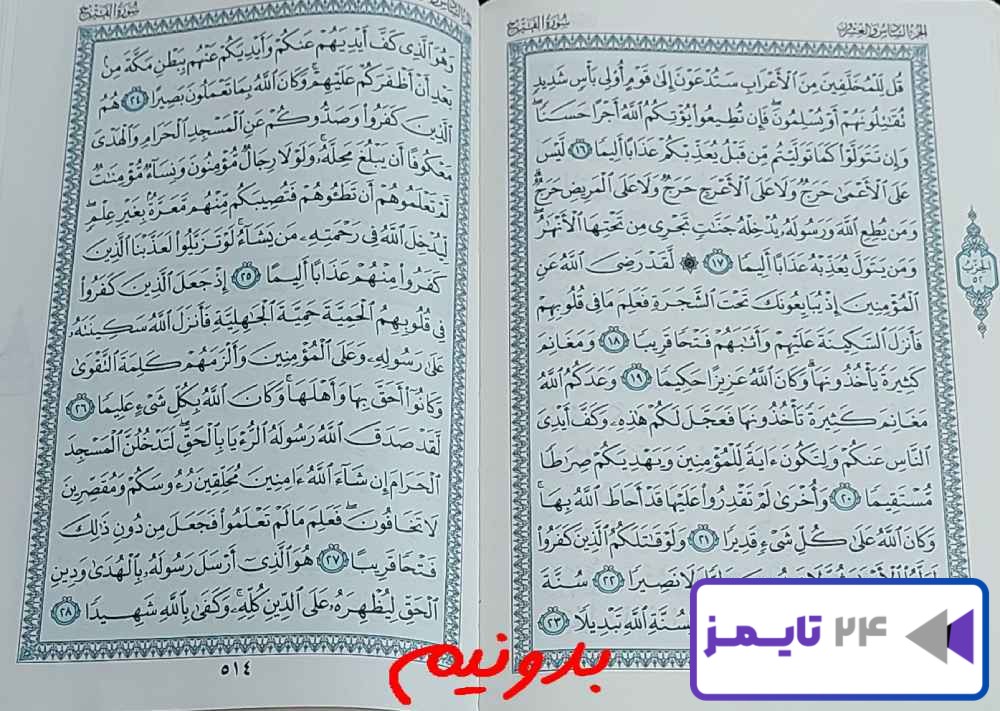 الجزء السادس والعشرون
سورة الفتح
قُل لِّلْمُخَلَّفِينَ مِنَ ٱلْأَعْرَابِ سَتُدْعَوْنَ إِلَىٰ قَوْمٍ أُو۟لِى بَأْسٍ شَدِيدٍ
تُقَـٰتِلُونَهُمْ أَوْ يُسْلِمُونَ ۖ فَإِن تُطِيعُوا۟ يُؤْتِكُمُ ٱللَّهُ أَجْرًا حَسَنًا ۖ
وَإِن تَتَوَلَّوْا۟ كَمَا تَوَلَّيْتُم مِّن قَبْلُ يُعَذِّبْكُمْ عَذَابًا أَلِيمًا ١٦ لَّيْسَ
عَلَى ٱلْأَعْمَىٰ حَرَجٌ وَلَا عَلَى ٱلْأَعْرَجِ حَرَجٌ وَلَا عَلَى ٱلْمَرِيضِ حَرَجٌ ۗ
وَمَن يُطِعِ ٱللَّهَ وَرَسُولَهُۥ يُدْخِلْهُ جَنَّـٰتٍ تَجْرِى مِن تَحْتِهَا ٱلْأَنْهَـٰرُ ۖ
وَمَن يَتَوَلَّ يُعَذِّبْهُ عَذَابًا أَلِيمًا ١٧ ۞ لَّقَدْ رَضِىَ ٱللَّهُ عَنِ
ٱلْمُؤْمِنِينَ إِذْ يُبَايِعُونَكَ تَحْتَ ٱلشَّجَرَةِ فَعَلِمَ مَا فِى قُلُوبِهِمْ
فَأَنزَلَ ٱلسَّكِينَةَ عَلَيْهِمْ وَأَثَـٰبَهُمْ فَتْحًا قَرِيبًا ١٨ وَمَغَانِمَ
كَثِيرَةً يَأْخُذُونَهَا ۗ وَكَانَ ٱللَّهُ عَزِيزًا حَكِيمًا ١٩ وَعَدَكُمُ ٱللَّهُ
مَغَانِمَ كَثِيرَةً تَأْخُذُونَهَا فَعَجَّلَ لَكُمْ هَـٰذِهِۦ وَكَفَّ أَيْدِىَ
ٱلنَّاسِ عَنكُمْ وَلِتَكُونَ ءَايَةً لِّلْمُؤْمِنِينَ وَيَهْدِيَكُمْ صِرَٰطًا
مُّسْتَقِيمًا ٢٠ وَأُخْرَىٰ لَمْ تَقْدِرُوا۟ عَلَيْهَا قَدْ أَحَاطَ ٱللَّهُ بِهَا ۚ
وَكَانَ ٱللَّهُ عَلَىٰ كُلِّ شَىْءٍ قَدِيرًا ٢١ وَلَوْ قَـٰتَلَكُمُ ٱلَّذِينَ كَفَرُوا۟
وَلَا نَصِيرًا ٢٢ سُنَّةَ
لِسُنَّةِ ٱللَّهِ تَبْدِيلًا ٢٣
الحزب ٥٢
سورة الفتح
وَهُوَ ٱلَّذِى كَفَّ أَيْدِيَهُمْ عَنكُمْ وَأَيْدِيَكُمْ عَنْهُم بِبَطْنِ مَكَّةَ مِنۢ
بَعْدِ أَنْ أَظْفَرَكُمْ عَلَيْهِمْ ۚ وَكَانَ ٱللَّهُ بِمَا تَعْمَلُونَ بَصِيرًا ٢٤ هُمُ
ٱلَّذِينَ كَفَرُوا۟ وَصَدُّوكُمْ عَنِ ٱلْمَسْجِدِ ٱلْحَرَامِ وَٱلْهَدْىَ
مَعْكُوفًا أَن يَبْلُغَ مَحِلَّهُۥ ۚ وَلَوْلَا رِجَالٌ مُّؤْمِنُونَ وَنِسَآءٌ مُّؤْمِنَـٰتٌ
لَّمْ تَعْلَمُوهُمْ أَن تَطَـُٔوهُمْ فَتُصِيبَكُم مِّنْهُم مَّعَرَّةٌۢ بِغَيْرِ عِلْمٍ ۖ
لِّيُدْخِلَ ٱللَّهُ فِى رَحْمَتِهِۦ مَن يَشَآءُ ۚ لَوْ تَزَيَّلُوا۟ لَعَذَّبْنَا ٱلَّذِينَ
كَفَرُوا۟ مِنْهُمْ عَذَابًا أَلِيمًا ٢٥ إِذْ جَعَلَ ٱلَّذِينَ كَفَرُوا۟
فِى قُلُوبِهِمُ ٱلْحَمِيَّةَ حَمِيَّةَ ٱلْجَـٰهِلِيَّةِ فَأَنزَلَ ٱللَّهُ سَكِينَتَهُۥ
عَلَىٰ رَسُولِهِۦ وَعَلَى ٱلْمُؤْمِنِينَ وَأَلْزَمَهُمْ كَلِمَةَ ٱلتَّقْوَىٰ
وَكَانُوٓا۟ أَحَقَّ بِهَا وَأَهْلَهَا ۚ وَكَانَ ٱللَّهُ بِكُلِّ شَىْءٍ عَلِيمًا ٢٦
لَّقَدْ صَدَقَ ٱللَّهُ رَسُولَهُ ٱلرُّءْيَا بِٱلْحَقِّ ۖ لَتَدْخُلُنَّ ٱلْمَسْجِدَ
ٱلْحَرَامَ إِن شَآءَ ٱللَّهُ ءَامِنِينَ مُحَلِّقِينَ رُءُوسَكُمْ وَمُقَصِّرِينَ
لَا تَخَافُونَ ۖ فَعَلِمَ مَا لَمْ تَعْلَمُوا۟ فَجَعَلَ مِن دُونِ ذَٰلِكَ
فَتْحًا قَرِيبًا ٢٧ هُوَ ٱلَّذِىٓ أَرْسَلَ رَسُولَهُۥ بِٱلْهُدَىٰ وَدِينِ
ٱلْحَقِّ لِيُظْهِرَهُۥ عَلَى ٱلدِّينِ كُلِّهِۦ ۚ وَكَفَىٰ بِٱللَّهِ شَهِيدًا ٢٨
٥١٤
بدونیم
۲۴ تایمز